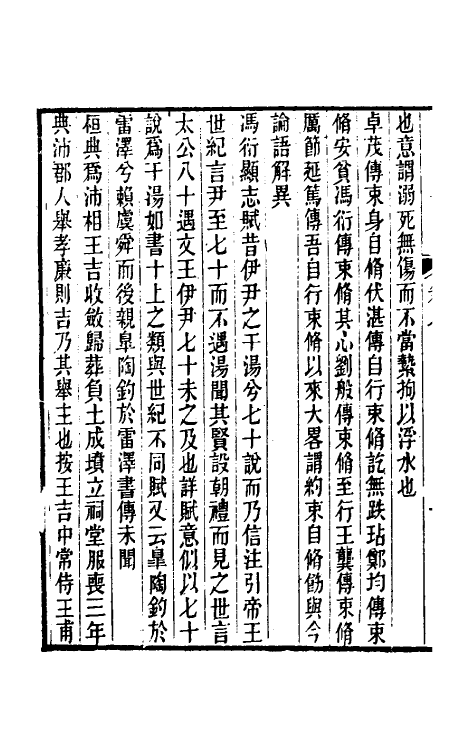 也意謂溺死無傷而不當蟄拘以浮水也
卓茂傳束身自脩伏湛傳自行束脩訖無跌玷鄭均傳束
脩安貧馮衍傳束脩其心劉般傳束脩至行王龔傳束脩
厲節延篤傳吾自行束脩以來大畧謂約束自脩飭與今
論語解異
馮衍顯志賦昔伊尹之干湯兮七十說而乃信注引帝王
世紀言尹至七十而不遇湯聞其賢設朝禮而見之世言
太公八十遇文王伊尹七十未之及也詳賦意似以七十
說爲干湯如書十上之類與世紀不同賦又云臯陶釣於
雷澤兮賴虞舜而後親臯陶釣於雷澤書傳未聞
桓典爲沛相王吉收斂歸葬負土成墳立祠堂服喪三年
典沛郡人舉孝廉則吉乃其舉主也按王吉中常侍王甫